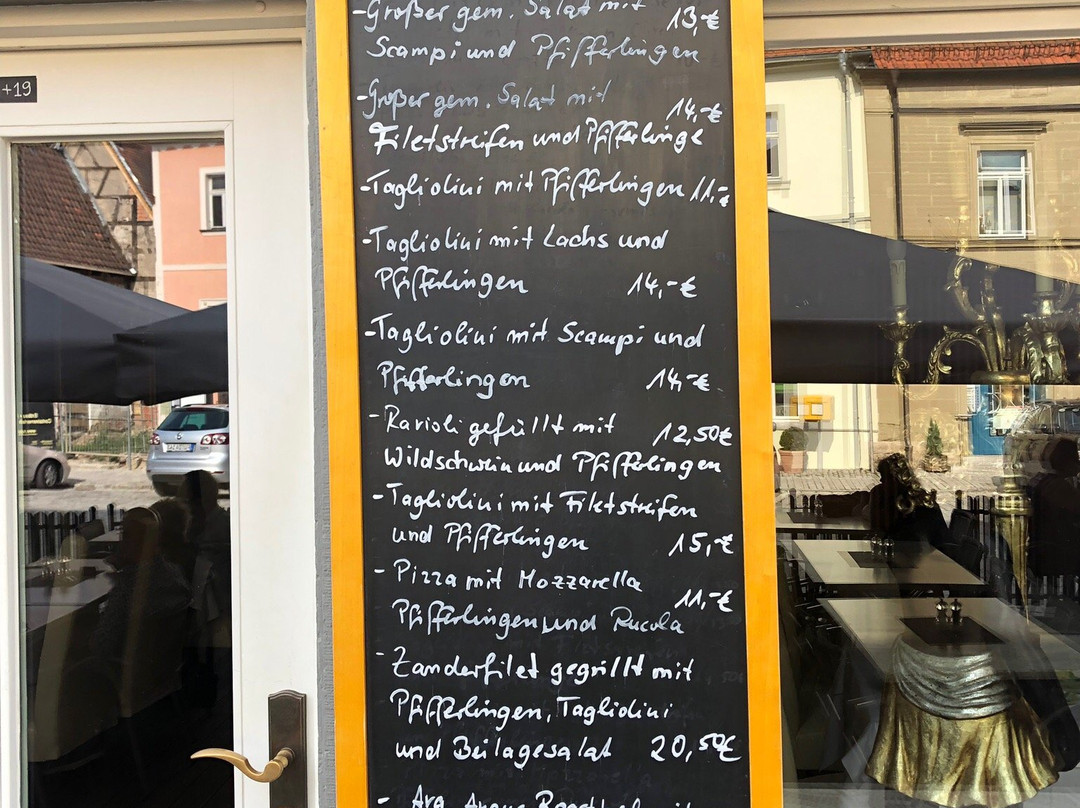 +19
-Großer gem. Salat mit 13,-€
Scampi und Pfifferlingen
-Großer gem. Salat mit 14,-€
Filetstreifen und Pfifferlinge
-Tagliolini mit Pfifferlingen 11,-€
-Tagliolini mit Lachs und
Pfifferlingen 14,-€
-Tagliolini mit Scampi und
Pfifferlingen 14,-€
-Ravioli gefüllt mit 12,50€
Wildschwein und Pfifferlingen
-Tagliolini mit Filetstreifen
und Pfifferlingen 15,-€
-Pizza mit Mozzarella 11,-€
Pfifferlingen und Rucola
-Zanderfilet gegrillt mit
Pfifferlingen, Tagliolini
und Beilagesalat 20,50€